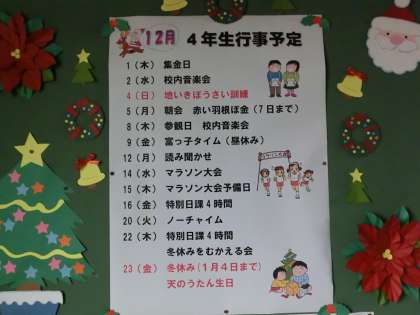 12月 4年生行事予定
1（木） 集金日
2（水） 校内音楽会
4（日） 地いきぼうさい訓練
5（月） 朝会 赤い羽根ぼ金（7日まで）
8（木） 参観日 校内音楽会
9（金） 富っ子タイム（昼休み）
12（月） 読み聞かせ
14（水） マラソン大会
15（木） マラソン大会予備日
16（金） 特別日課4時間
20（火） ノーチャイム
22（木） 特別日課4時間
冬休みをむかえる会
23（金） 冬休み（1月4日まで）
天のうたん生日